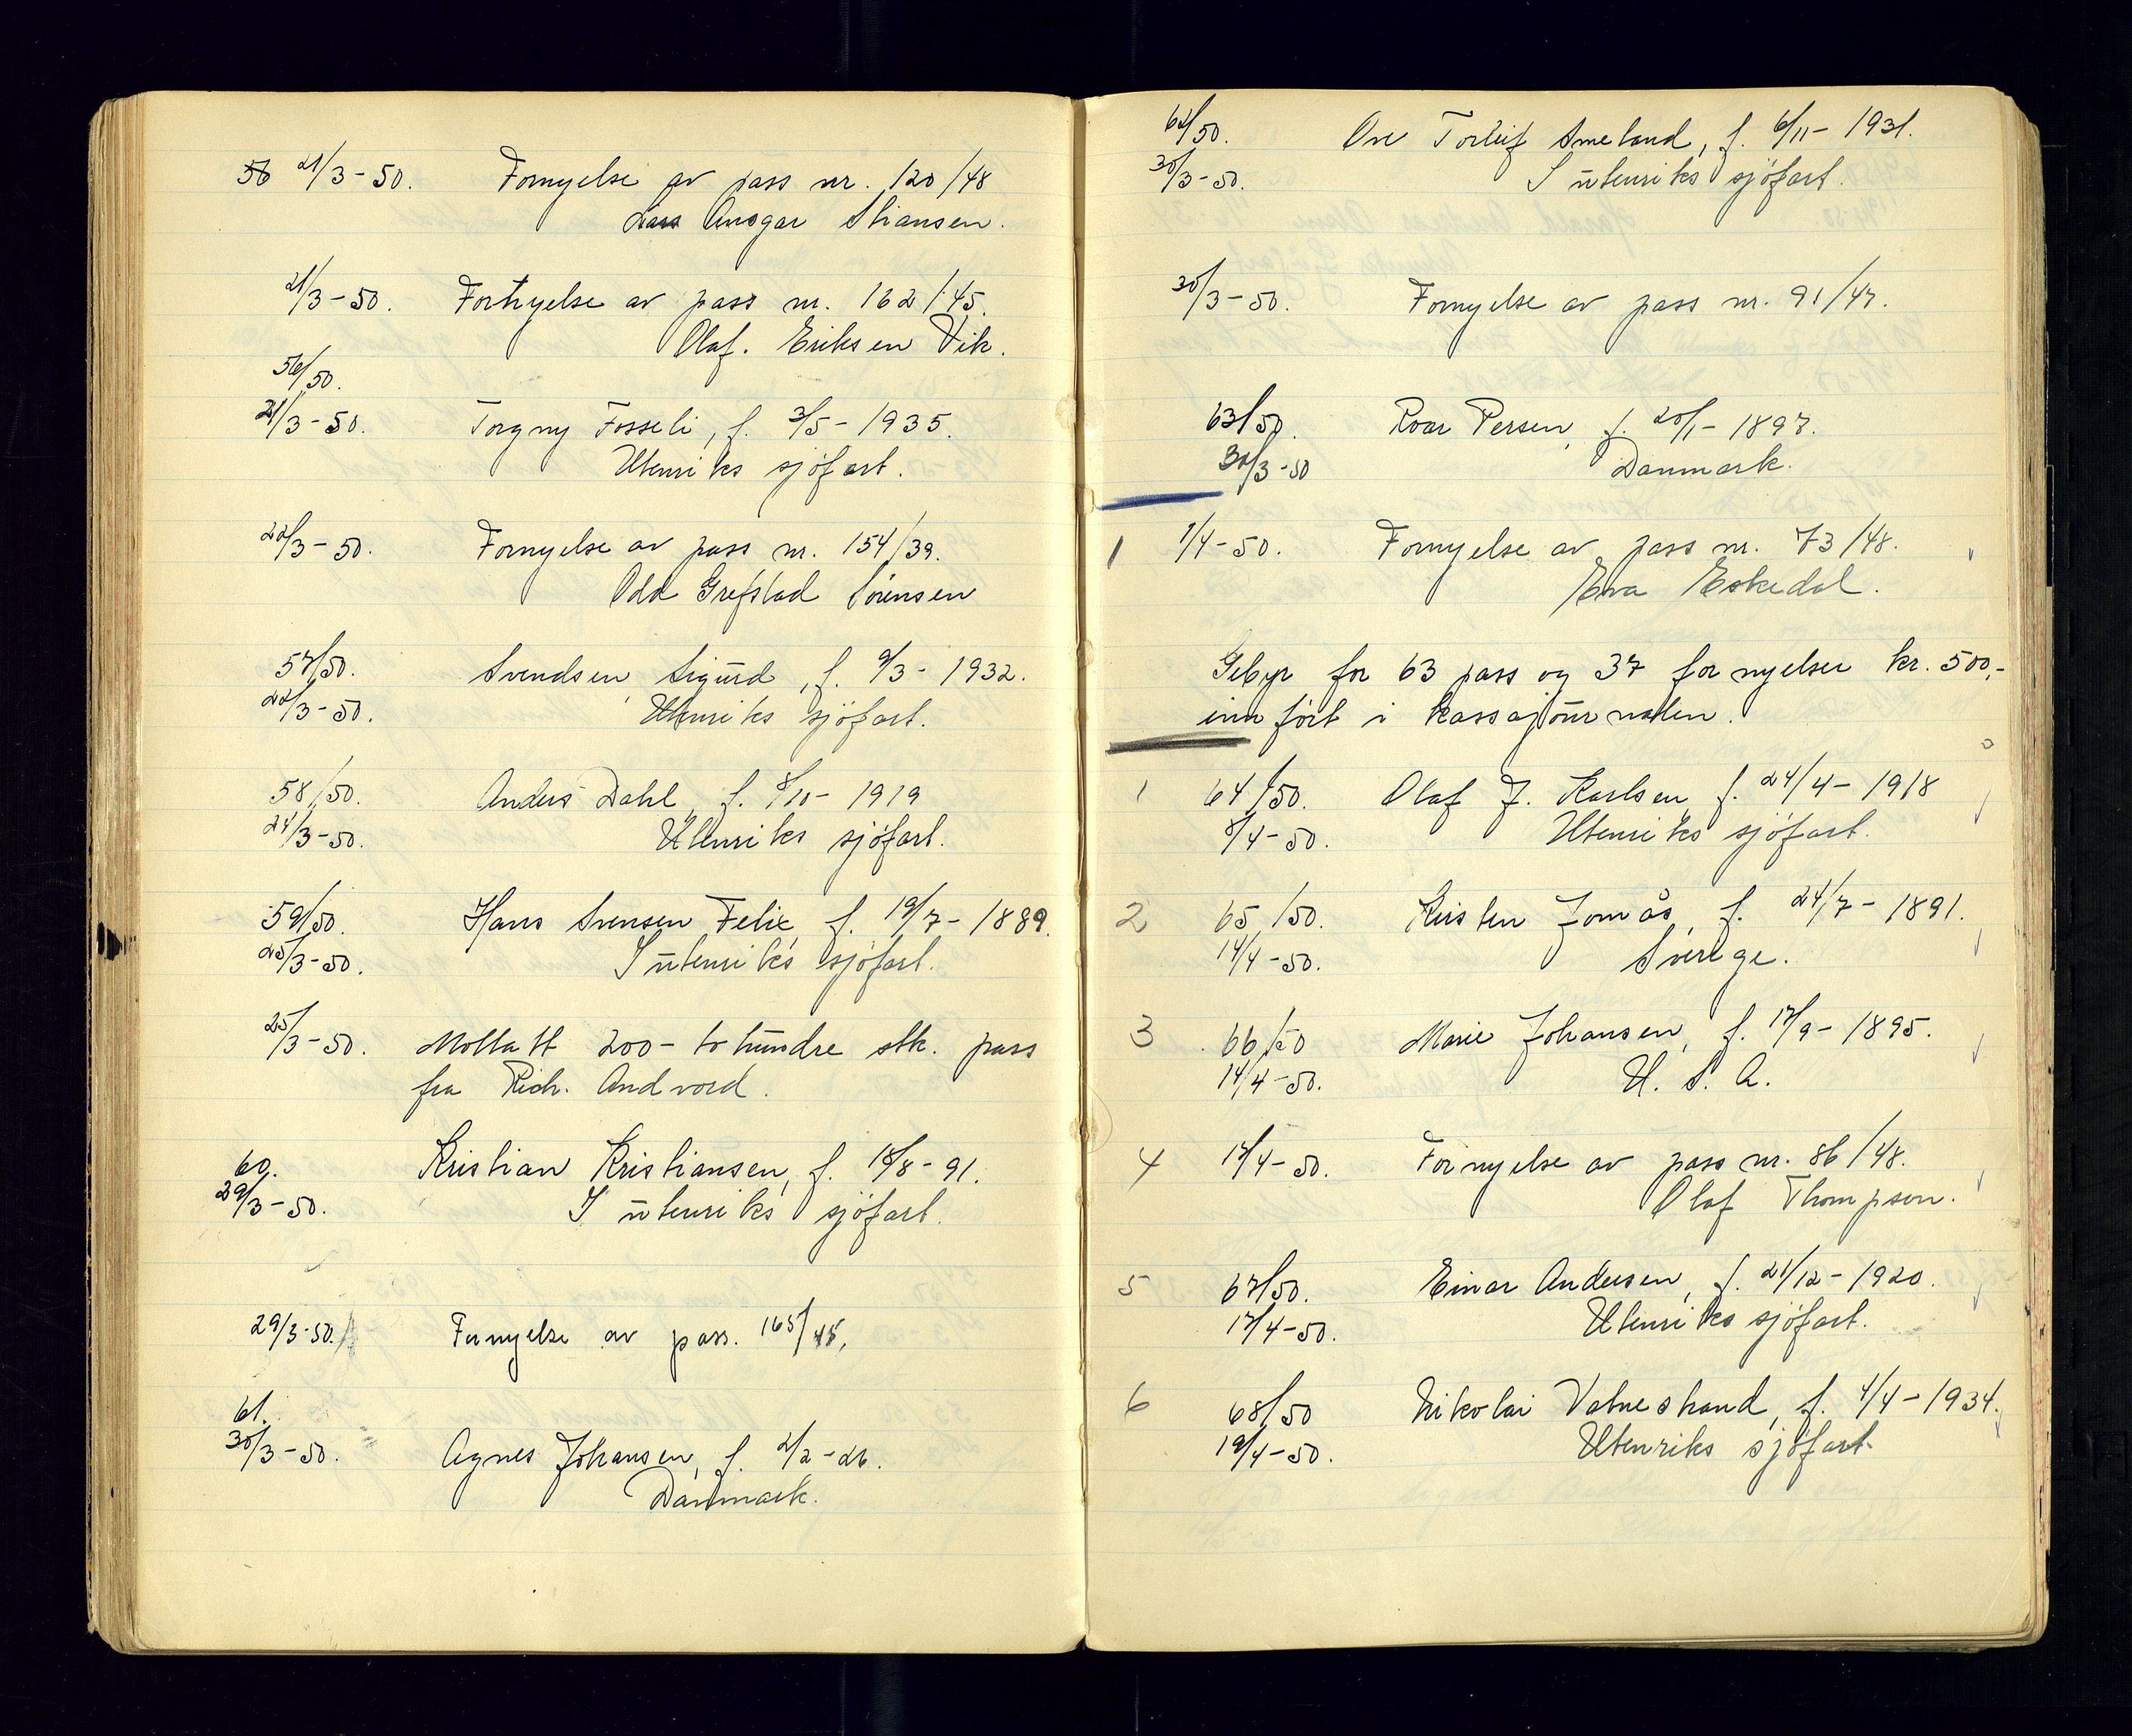 21/3-50. Fornyelse av pass nr. 120/48
Ansgar Stiansen.
21/3-50. Fornyelse av pass nr. 162/45.
Olaf. Eriksen Vik.
56/50.
21/3-50. Torgny Fosseli, f. 3/5-1935.
Utenriks sjöfart.
22/3-50. Fornyelse av pass nr. 154/39.
Odd Grefstad Sörensen
57/50. Svendsen Sigurd, f. 9/3-1932.
22/3-50. Utenriks sjöfart.
58/50. Anders Dahl, f. 8/10-1919
24/3-50. Utenriks sjöfart.
59/50. Hans Svensen Felix f. 19/7-1889.
25/3-50. I utenriks sjöfart.
25/3-50. Mottatt 200- to hundre stk. pass
fra Rich. Andvord.
60. Kristian Kristiansen, f. 18/8-91.
29/3-50. I utenriks sjöfart.
29/3-50. Fornyelse av pass. 165/45.
61.
30/3-50. Agnes Johansen, f. 2/2-26.
Danmark.
62/50. Ove Torleif Smeland, f. 6/11-1931.
30/3-50. I utenriks sjöfart.
30/3-50. Fornyelse av pass nr. 91/47.
63/50. Roar Persen, f. 20/1-1897.
30/3-50 Danmark.
1 1/4-50. Fornyelse av pass nr. 73/48.
Eva Eskedal.
Gebyr for 63 pass og 37 fornyelser kr. 500,-
innfört i kassajournalen.
1 64/50. Olaf J. Karlsen, f. 24/4-1918
8/4-50. Utenriks sjöfart.
2 65/50. Kristen Jomås, f. 24/7-1891.
14/4-50. Sverige.
3 66/50 Marie Johansen, f. 17/9-1895.
14/4-50. U. S. A.
4 17/4-50. Fornyelse av pass nr. 86/48.
Olaf Thompson.
5 67/50. Einar Andersen, f. 21/12-1920.
17/4-50. Utenriks sjöfart.
6 68/50 Nikolai Vatnestrand, f. 4/4-1934.
19/4-50. Utenriks sjöfart.